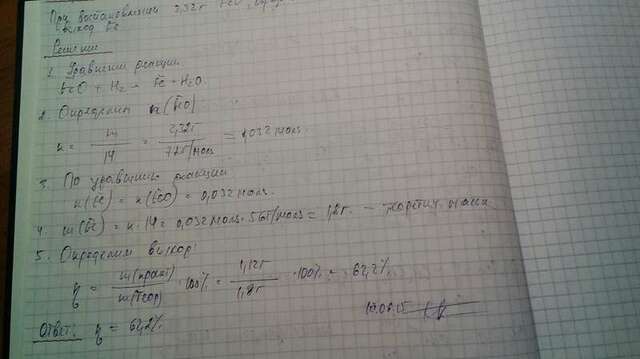 При восстановлении 2,32г FeO
выход Fe
Решение
1. Уравнение реакции
FeO + H₂ = Fe + H₂O.
2. Определяем n(FeO)
n = m / M = 2,32г / 72г/моль = 0,032 моль.
3. По уравнению реакции
n(Fe) = n(FeO) = 0,032 моль.
4. m(Fe) = n · M = 0,032 моль · 56г/моль = 1,8г. – теоретич. масса
5. Определим выход:
η = m(практ) / m(теор) · 100% = 1,12г / 1,8г · 100% = 62,2%
Ответ: η = 62,2%.